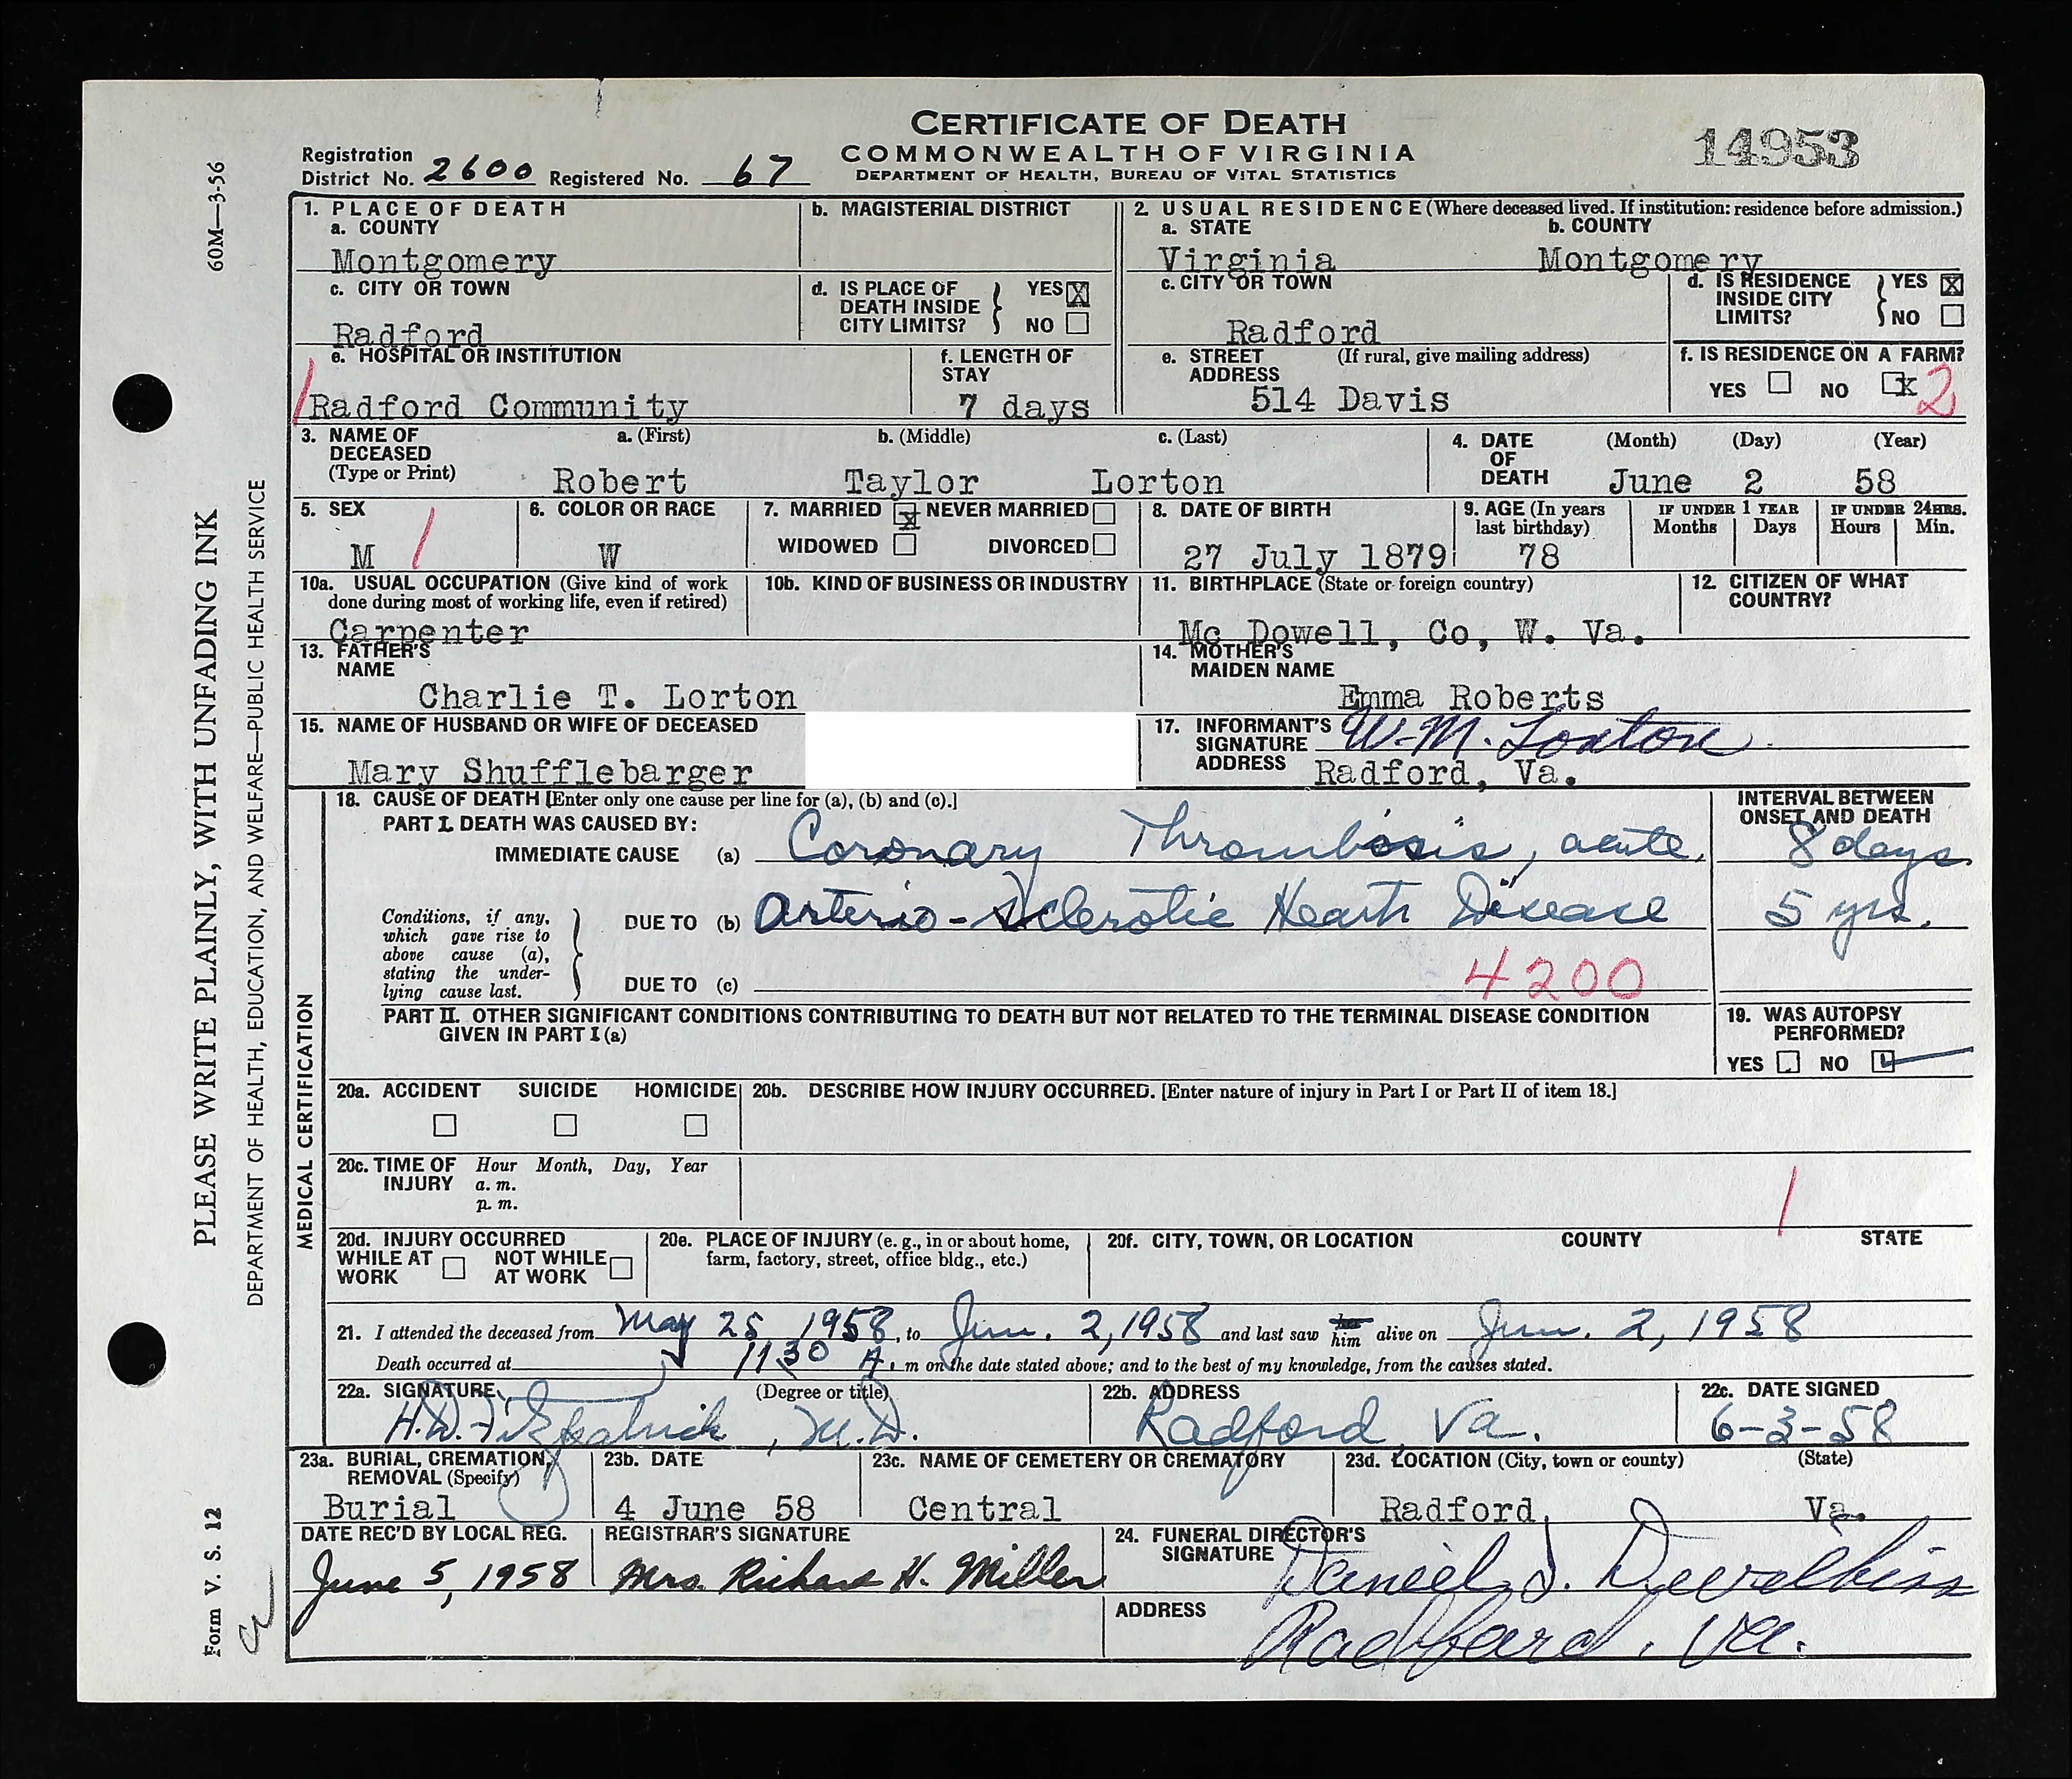 CERTIFICATE OF DEATH
COMMONWEALTH OF VIRGINIA
DEPARTMENT OF HEALTH, BUREAU OF VITAL STATISTICS
14953
Registration
District No. 2600 Registered No. 67
60M—3-56
PLEASE WRITE PLAINLY, WITH UNFADING INK
DEPARTMENT OF HEALTH, EDUCATION, AND WELFARE—PUBLIC HEALTH SERVICE
Form V. S. 12
1. PLACE OF DEATH
a. COUNTY
Montgomery
b. MAGISTERIAL DISTRICT
2. USUAL RESIDENCE (Where deceased lived. If institution: residence before admission.)
a. STATE b. COUNTY
Virginia Montgomery
c. CITY OR TOWN
Radford
d. IS PLACE OF DEATH INSIDE CITY LIMITS? YES X NO
c. CITY OR TOWN
Radford
d. IS RESIDENCE INSIDE CITY LIMITS? YES X NO
e. HOSPITAL OR INSTITUTION
1 Radford Community
f. LENGTH OF STAY
7 days
e. STREET ADDRESS (If rural, give mailing address)
514 Davis
f. IS RESIDENCE ON A FARM?
YES NO X 2
3. NAME OF DECEASED (Type or Print)
a. (First) b. (Middle) c. (Last)
Robert Taylor Lorton
4. DATE OF DEATH (Month) (Day) (Year)
June 2 58
5. SEX
M 1
6. COLOR OR RACE
W
7. MARRIED X NEVER MARRIED
WIDOWED DIVORCED
8. DATE OF BIRTH
27 July 1879
9. AGE (In years last birthday)
78
IF UNDER 1 YEAR
Months Days
IF UNDER 24HRS.
Hours Min.
10a. USUAL OCCUPATION (Give kind of work done during most of working life, even if retired)
Carpenter
10b. KIND OF BUSINESS OR INDUSTRY
11. BIRTHPLACE (State or foreign country)
Mc Dowell, Co, W. Va.
12. CITIZEN OF WHAT COUNTRY?
13. FATHER'S NAME
Charlie T. Lorton
14. MOTHER'S MAIDEN NAME
Emma Roberts
15. NAME OF HUSBAND OR WIFE OF DECEASED
Mary Shufflebarger
17. INFORMANT'S SIGNATURE W. M. Lorton
ADDRESS Radford, Va.
MEDICAL CERTIFICATION
18. CAUSE OF DEATH [Enter only one cause per line for (a), (b) and (c).]
PART I. DEATH WAS CAUSED BY:
INTERVAL BETWEEN ONSET AND DEATH
IMMEDIATE CAUSE (a) Coronary Thrombosis, acute, 8 days.
Conditions, if any, which gave rise to above cause (a), stating the underlying cause last.
DUE TO (b) Arterio-Sclerotic Heart Disease 5 yrs.
DUE TO (c) 4200
PART II. OTHER SIGNIFICANT CONDITIONS CONTRIBUTING TO DEATH BUT NOT RELATED TO THE TERMINAL DISEASE CONDITION
GIVEN IN PART I (a)
19. WAS AUTOPSY PERFORMED?
YES NO
20a. ACCIDENT SUICIDE HOMICIDE
20b. DESCRIBE HOW INJURY OCCURRED. [Enter nature of injury in Part I or Part II of item 18.]
20c. TIME OF INJURY Hour Month, Day, Year
a. m.
p. m.
1
20d. INJURY OCCURRED
WHILE AT WORK NOT WHILE AT WORK
20e. PLACE OF INJURY (e. g., in or about home, farm, factory, street, office bldg., etc.)
20f. CITY, TOWN, OR LOCATION COUNTY STATE
21. I attended the deceased from May 25, 1958, to Jun. 2, 1958 and last saw her him alive on Jun. 2, 1958
Death occurred at 1130 A. m on the date stated above; and to the best of my knowledge, from the causes stated.
22a. SIGNATURE (Degree or title)
H. D. Fitzpatrick, M.D.
22b. ADDRESS
Radford, Va.
22c. DATE SIGNED
6-3-58
23a. BURIAL, CREMATION, REMOVAL (Specify)
Burial
23b. DATE
4 June 58
23c. NAME OF CEMETERY OR CREMATORY
Central
23d. LOCATION (City, town or county) (State)
Radford, Va.
DATE REC'D BY LOCAL REG.
June 5, 1958
REGISTRAR'S SIGNATURE
Mrs. Richard H. Miller
24. FUNERAL DIRECTOR'S SIGNATURE
Daniel
ADDRESS
Radford, Va.